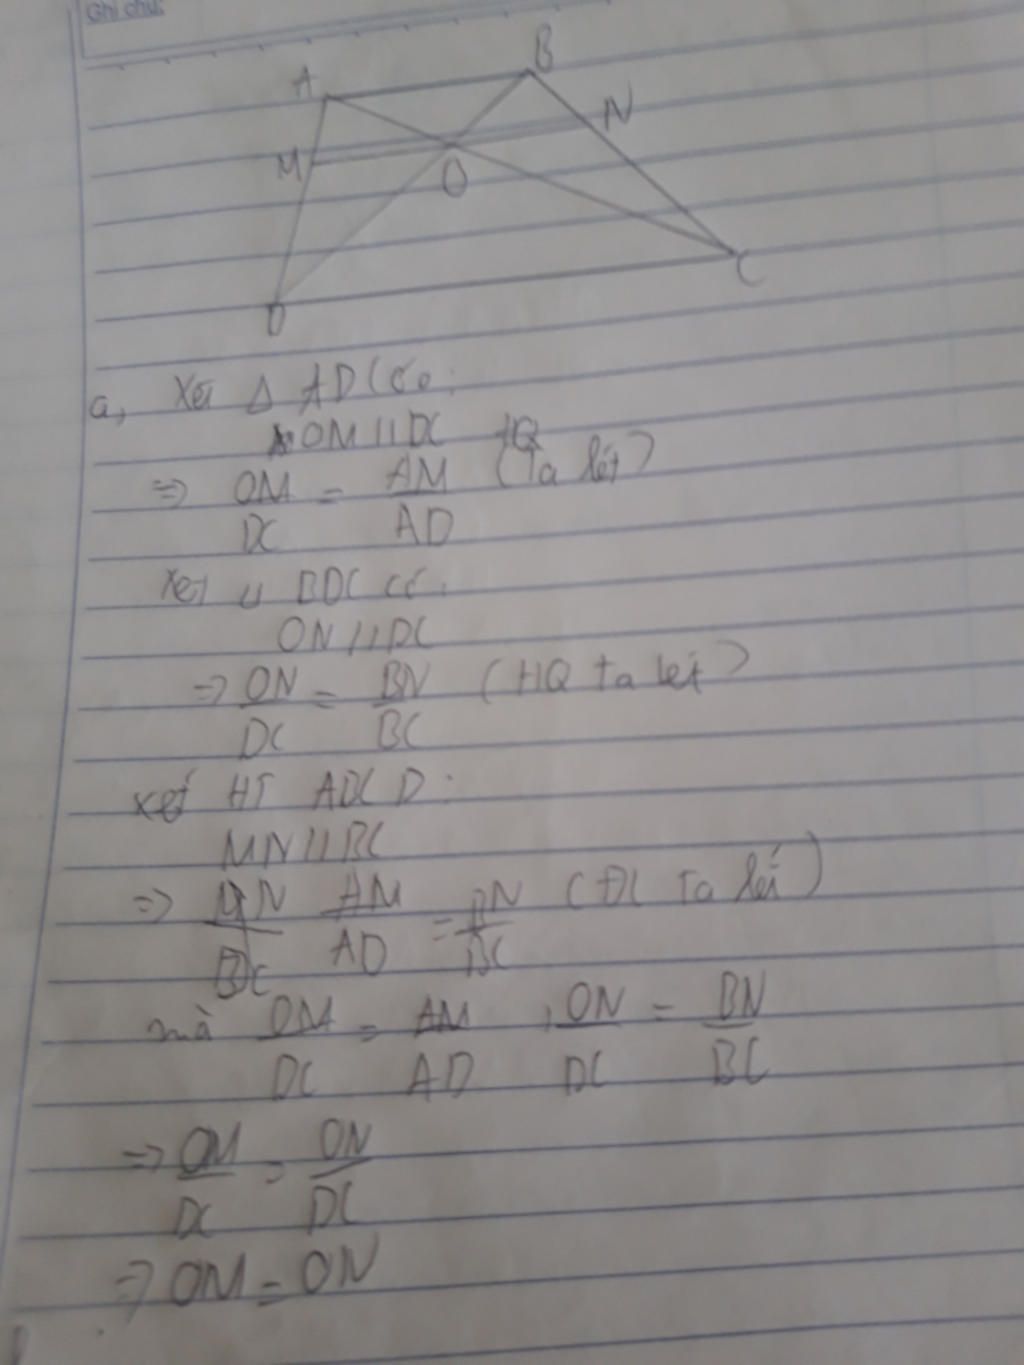 Ghi chú:
A
B
M
N
O
D
C
a, Xét Δ ADC có:
OM//DC HQ
=> OM/DC = AM/AD (Ta lét)
Xét Δ BDC có:
ON//DC
=> ON/DC = BN/BC (HQ ta lét)
xét HT ABCD:
MN//BC
=> AM/AD = BN/BC (ĐL Ta lét)
mà OM/DC = AM/AD, ON/DC = BN/BC
=> OM/DC = ON/DC
=> OM = ON